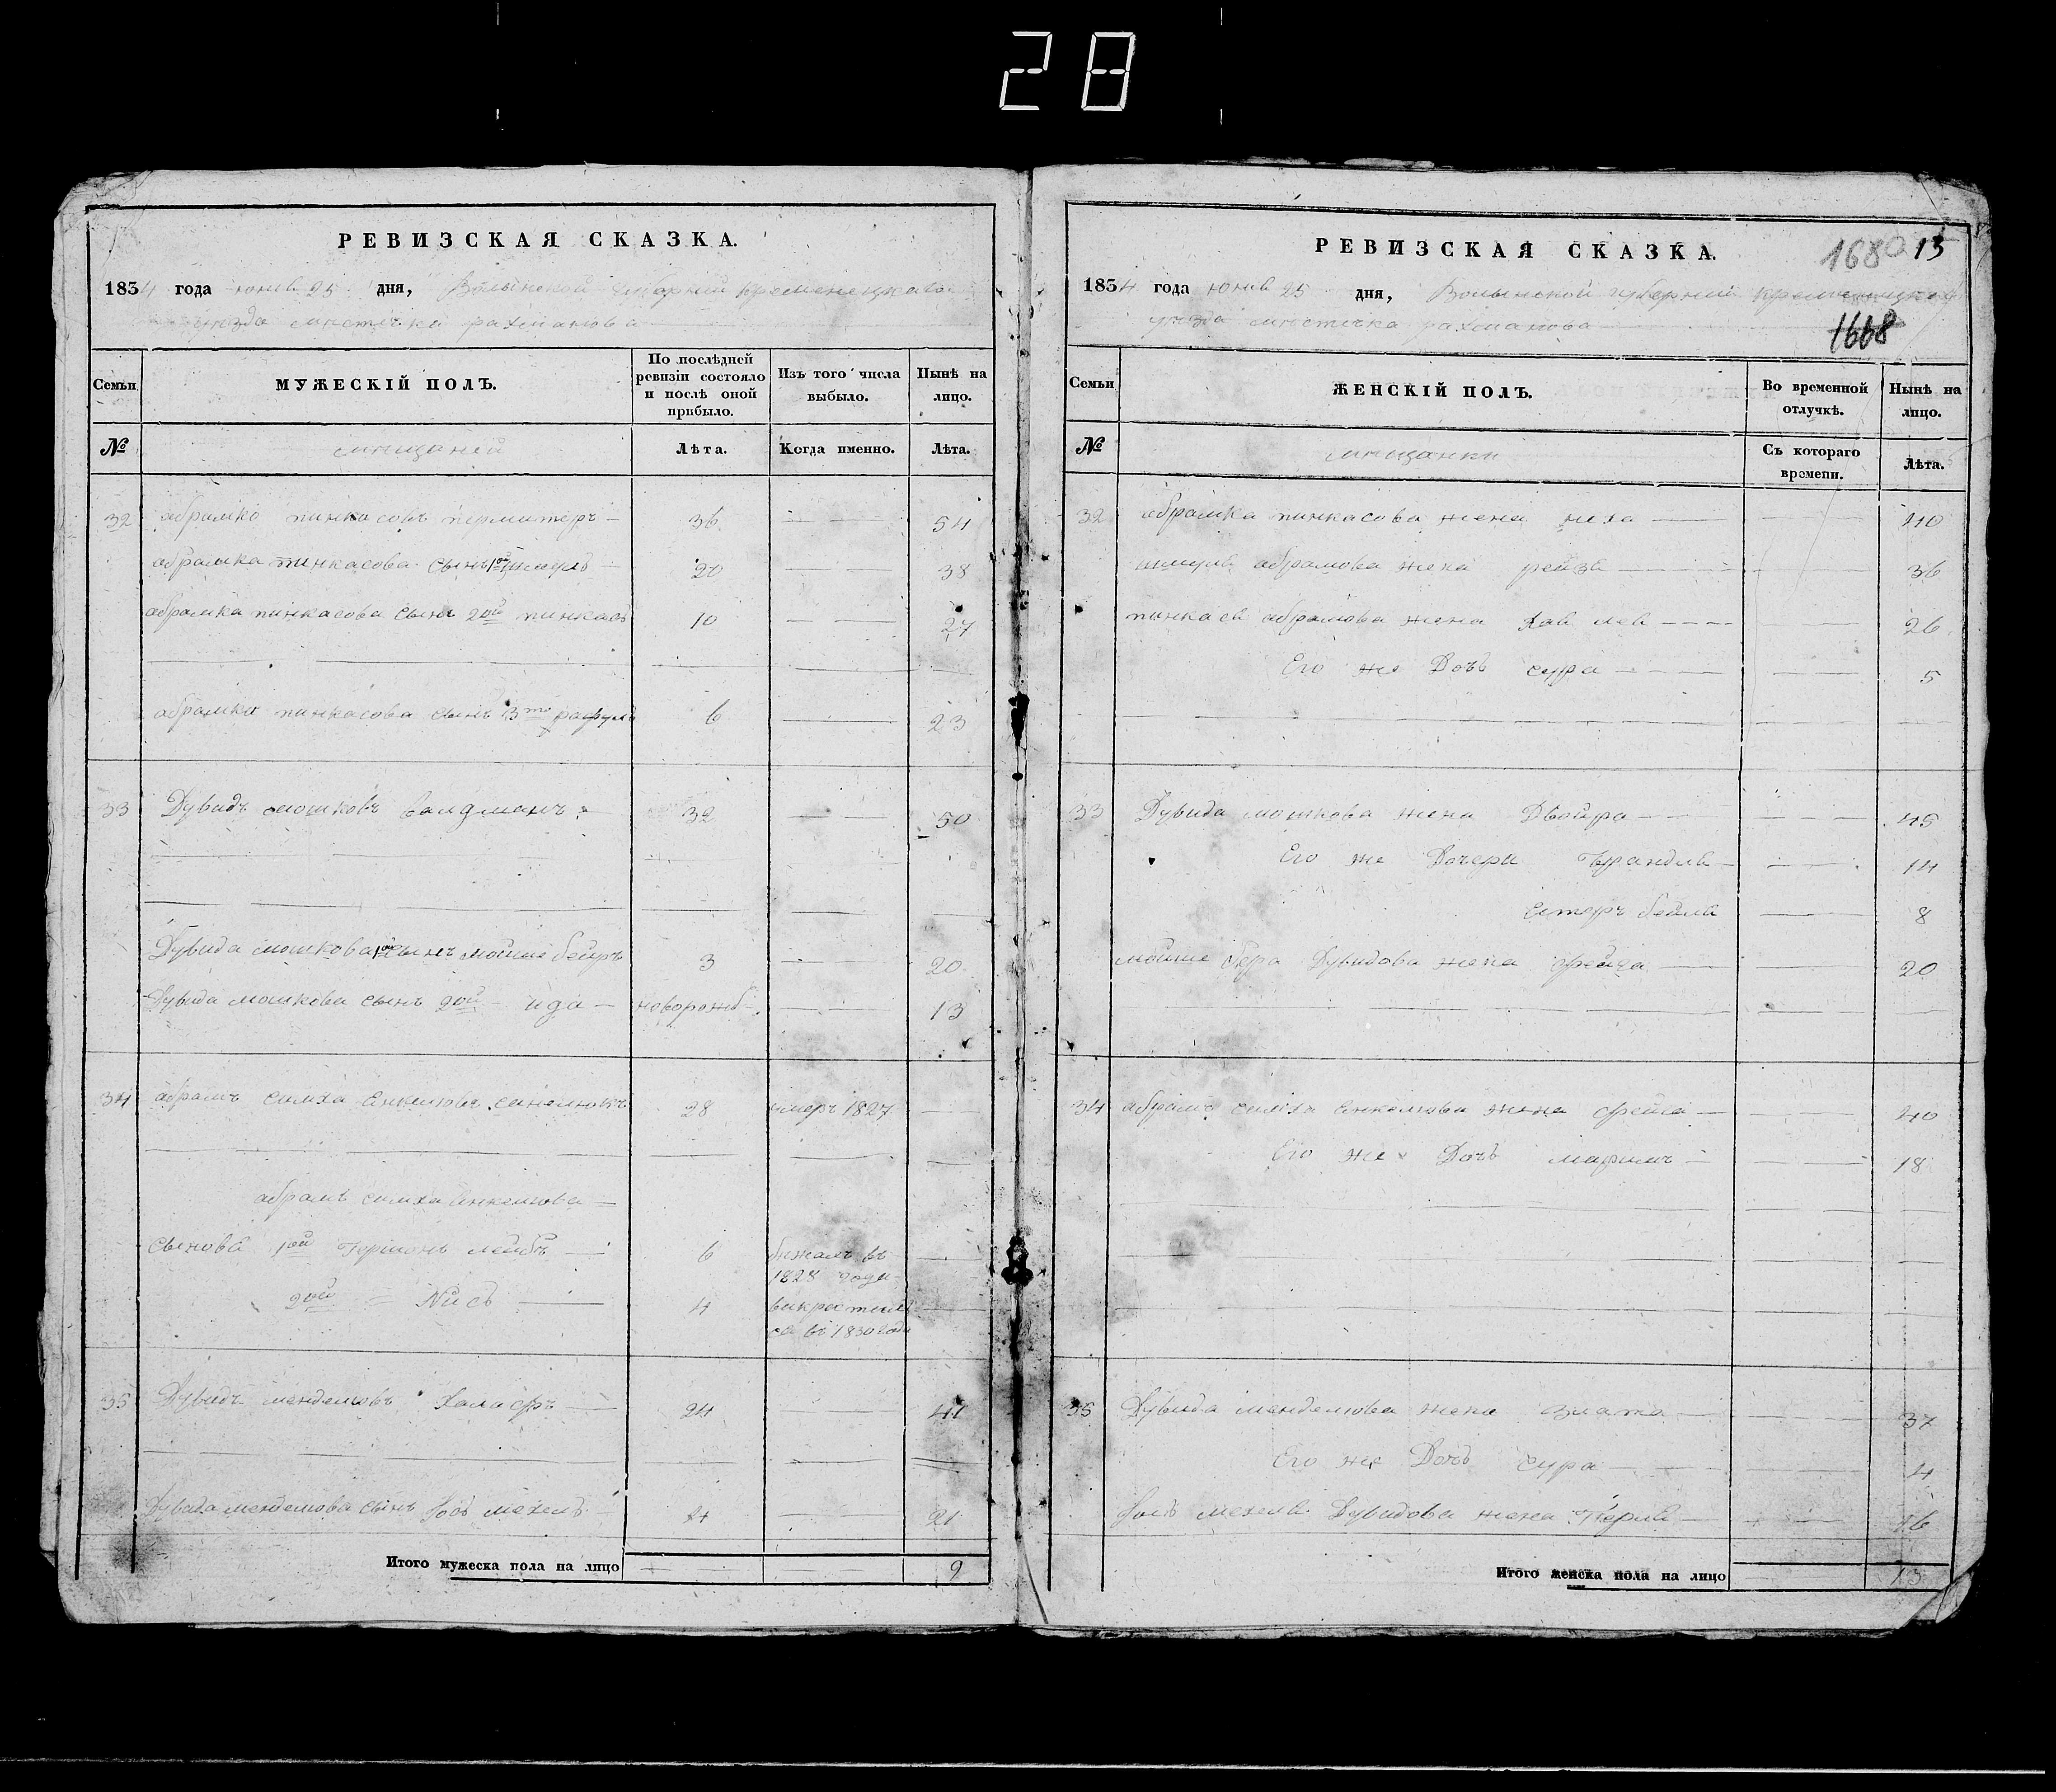 28
РЕВИЗСКАЯ СКАЗКА.
1834 года юнѣ 25 дня, Волынской губерніи Кременецкаго
уезда местечка рахманова
Семьи
МУЖЕСКІЙ ПОЛЪ.
По послѣдней ревизіи состояло и послѣ оной прибыло.
Изъ того числа выбыло.
Нынѣ на лицо.
№
мещаней
Лѣта.
Когда именно.
Лѣта.
32 абрамко пинкасовъ 36 54
абрамка пинкасова сынъ 1ой шмуль 20 38
абрамка пинкасова сынъ 2ой пинкасъ 10 27
абрамка пинкасова сынъ 3то рафулъ 6 23
33 Дувидъ мошковъ валдманъ 32 50
Дувида мошкова 1ой сынъ мойше беиръ 3 20
Дувида мошкова сынъ 2ой ида новорожд 13
34 абрамъ симха 28 умеръ 1827
абрамъ симха
сынова 1ой лейбъ 6 бижалъ въ
1828 года
2ой Nисъ 4 викрестил
ся въ 1830 года
35 Дувидъ менделювъ 24 41
Дувида менделюва сынъ мехелъ 4 21
Итого мужеска пола на лицо 9
РЕВИЗСКАЯ СКАЗКА.
1680 13
1834 года юнѣ 25 дня, Волынской губерніи Кременецкаго
уезда местечка рахманова
1668
Семьи
ЖЕНСКІЙ ПОЛЪ.
Во временной отлучкѣ.
Нынѣ на лицо.
№
мещанки
Съ котораго времени.
Лѣта.
32 абрамка пинкасова жена неха 40
шмуля абрамова жена рейзя 36
пинкася абрамова жена Хав лея 26
Его же Дочъ сура 5
33 Дувида мошкова жена Двойра 45
Его же Дочери 14
естеръ бейла 8
мойше бера Дувидова жена фрейда 20
34 абрамъ симха жена фрейга 40
Его же Дочъ маримъ 18
35 Дувида менделюва жена злата 37
Его же Дочъ сура 4
мехеля Дувидова жена Перля 16
Итого женска пола на лицо 13